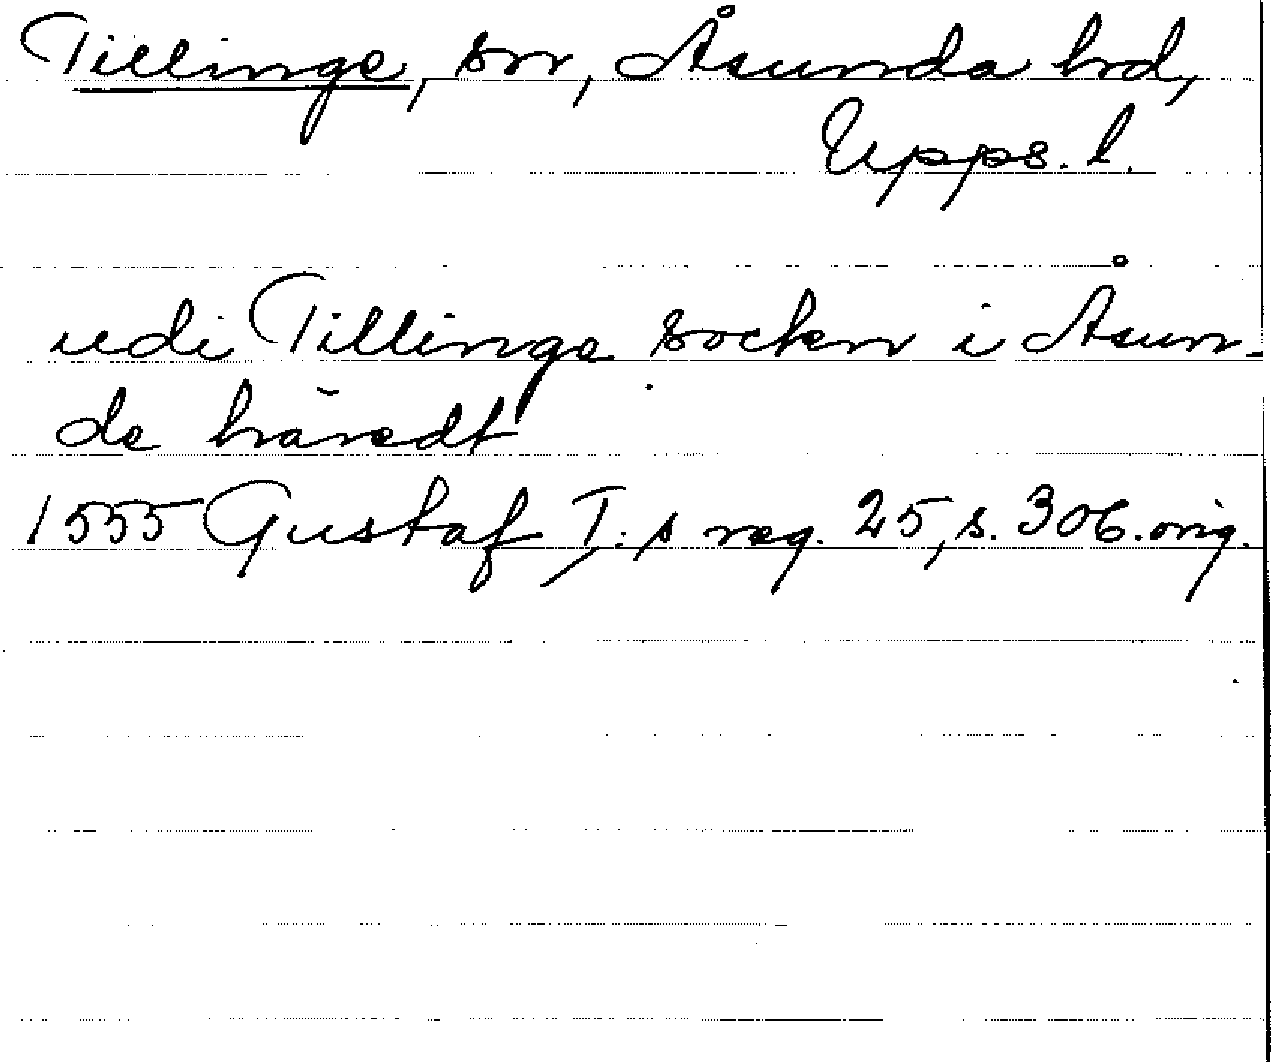 Tillinge, sn, Åsunda hd,
Upps. l.
udi Tillinge sockn i Åsun-
de häredt
1555 Gustaf I:s reg. 25, s. 306. orig.